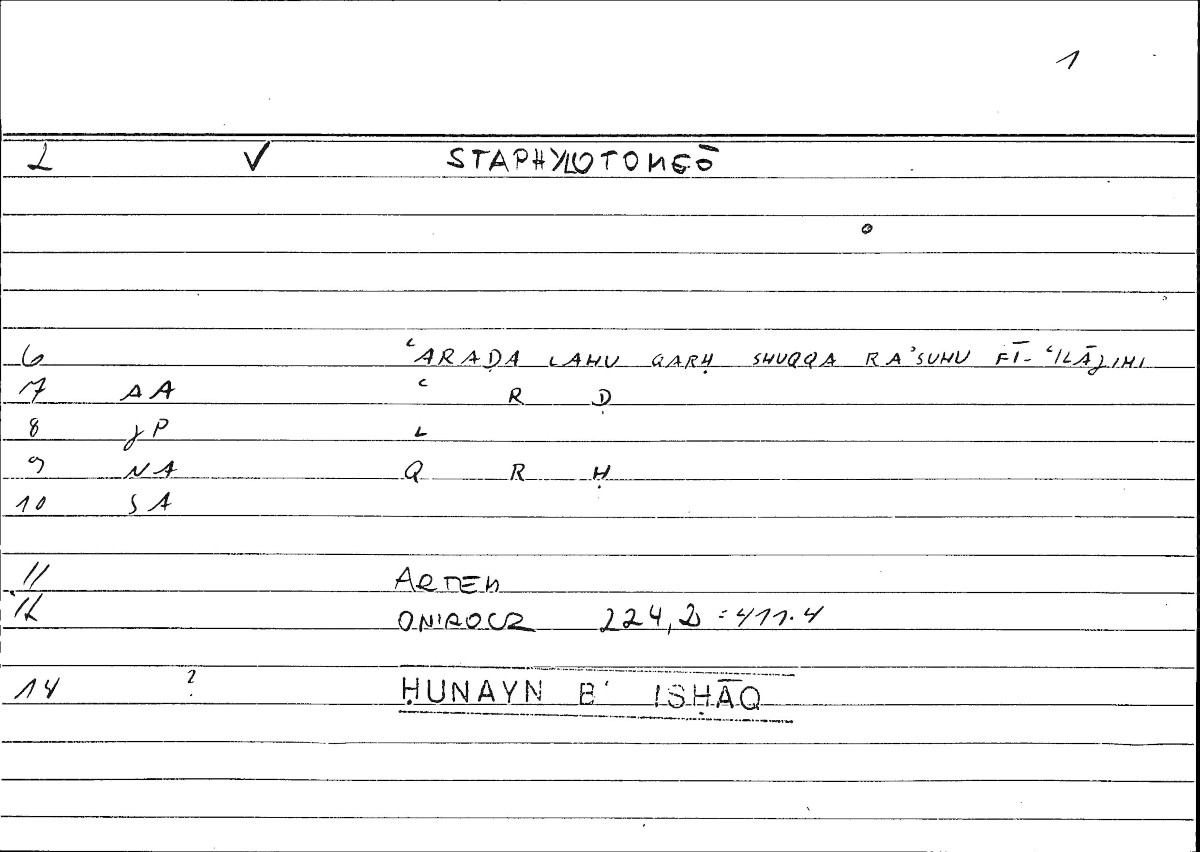 1
2 V STAPHYLOTOMEŌ
6 ʿARAḌA LAHU QARḤ SHUQQA RAʾSUHU FĪ-ʿILĀJIHI
7 AA ʿ R Ḍ
8 JP L
9 NA Q R Ḥ
10 SA
11 ARTEM
12 ONIROCR 224,2 = 411.4
14 ? ḤUNAYN B' ISḤĀQ